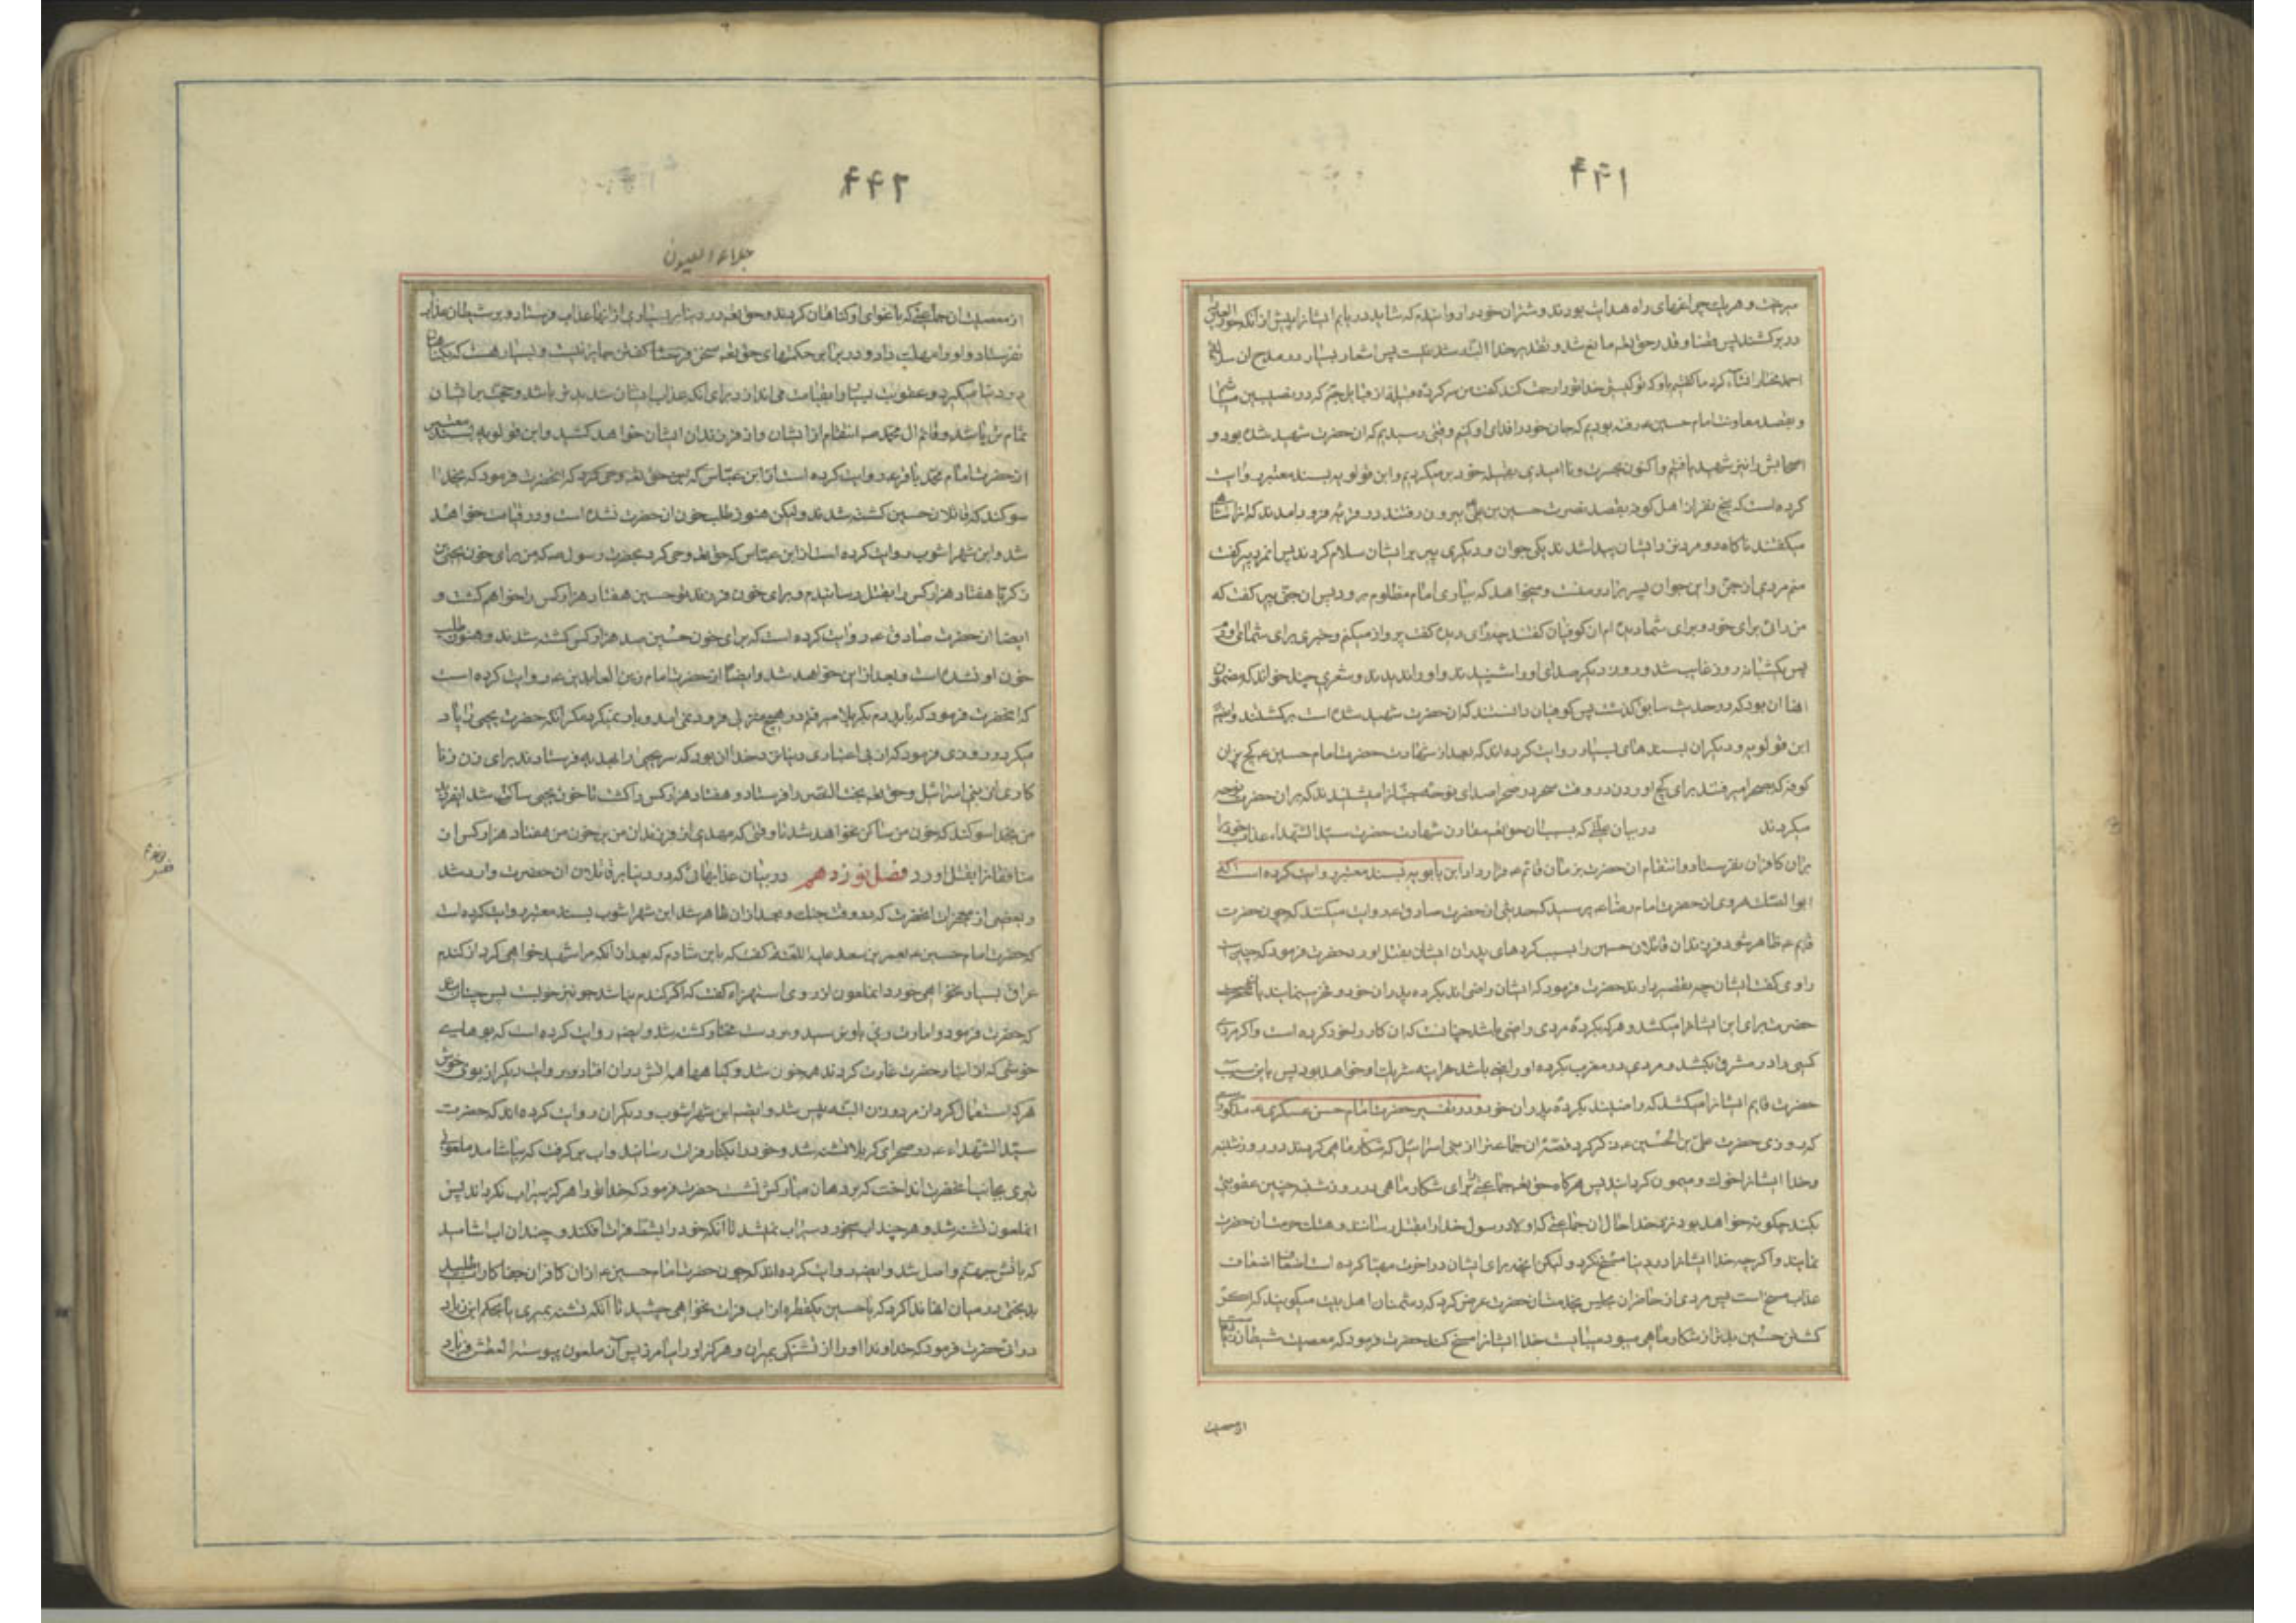 ۴۴۱
میرخت و هریك چراغهای راه هدایت بودند و شتران خود را دوانیدم که شاید دریابم ایشانرا پیش از آنکه حورالعین
در بر کشند پس قضا و قدر حق تعالی مانع شد
احمد مختار انشاء کرد ما گفتیم باو که تو کیستی خدا تو را رحمت کند گفت من سرکرده قبیله از قبایل جنم که در نصیبین میباشیم
و بقصد معاونت امام حسین ع رفته بودیم که جان خود را فدای او کنیم وقتی رسیدیم که آن حضرت شهید شده بود و
اصحابش را نیز شهید یافتیم و اکنون بحسرت و ناامیدی بقبیله خود برمیگردیم و ابن قولویه بسند معتبر روایت
کرده است که پنج نفر از اهل کوفه بقصد نصرت حسین بن علی بیرون رفتند در قریه فرود آمدند که آنرا شاهی
میگفتند ناگاه دو مرد نزد ایشان پیدا شدند یکی جوان و دیگری پیر بر ایشان سلام کردند پس آنمرد پیر گفت
منم مردی از جن و این جوان پسر برادر منست و میخواهد که بیاری امام مظلوم برود پس آن جنی پیر گفت که
من رائی برای خود و برای شما دیده‌ام آن کوفیان گفتند چه رای دیده گفت پرواز میکنم و خبری برای شما می‌آورم
پس یکشبانه روز غایب شد و روز دیگر صدای او را شنیدند و او را ندیدند و شعری چند خواند که مضمون
آنها آن بود که در حدیث سابق گذشت پس کوفیان دانستند که آن حضرت شهید شده است برگشتند و ایضا
ابن قولویه و دیگران بسندهای بسیار روایت کرده‌اند که بعد از شهادت حضرت امام حسین ع گچ‌پزان
کوفه که بصحرا میرفتند برای گچ آوردن در وقت سحر در صحرا صدای نوحه جنیانرا میشنیدند که بر آن حضرت نوحه
میکردند در بیان علتی که بسبب آن حق تعالی مقارن شهادت حضرت سید الشهداء عذاب خود را
بر آن کافران نفرستاد و انتقام آن حضرت بزمان قائم ع قرار داد ابن بابویه بسند معتبر روایت کرده است که
ابوالصلت هروی از حضرت امام رضا ع پرسید که حدیثی از حضرت صادق ع روایت میکنند که چون حضرت
قایم ع ظاهر شود فرزندان قاتلان حسین را بسبب کرده‌های پدران ایشان بقتل آورد حضرت فرمود که چنین است
راوی گفت ایشان چه تقصیر دارند حضرت فرمود که ایشان راضی‌اند بکرده پدران خود و فخر مینمایند
حضرت برای این ایشانرا میکشد و هر که بکرده مردی راضی باشد چنانست که آن کار را خود کرده است و اگر مردی
کسی را در مشرق بکشد و مردی در مغرب بکرده او راضی باشد هرآینه شریك او خواهد بود پس باین سبب
حضرت قایم ایشانرا میکشد که راضیند بکرده پدران خود و در تفسیر حضرت امام حسن عسکری ع مذکور است
که روزی حضرت علی بن الحسین ع ذکر کرد قصه آن جماعتی را از بنی اسرائیل که شکار ماهی کردند در روز شنبه
و خدا ایشانرا خوك و میمون گردانید پس هرگاه حق تعالی جماعتی را برای شکار ماهی در روز شنبه چنین عقوبتی
بکند چگونه خواهد بود نزد خدا حال آن جماعتی که اولاد رسول خدا را بقتل رسانند و هتك حرمت آن حضرت
نمایند و اگرچه خدا ایشانرا در دنیا مسخ نکرد و لیکن آنچه برای ایشان در آخرت مهیا کرده است اضعاف
عذاب مسخ است پس مردی از حاضران مجلس بخدمت آن حضرت عرض کرد که دشمنان اهل بیت میگویند که اگر
کشتن حسین بدتر از شکار ماهی میبود میبایست خدا ایشانرا مسخ کند حضرت فرمود که معصیت شیطان
از معصیت
۴۴۲
جلاء العیون
از معصیت آن جماعتی که باغوای او گناهان کردند و حق تعالی در دنیا بر بسیاری از آنها عذاب فرستاد و بر شیطان عذاب
نفرستاد و او را مهلت داد و در برابر حکمتهای حق تعالی سخن گفتن جایز نیست و بسیار هست که
در دنیا میگیرد و عقوبت بسیار را بقیامت می‌اندازد برای آنکه عذاب ایشان شدیدتر باشد و حجت بر ایشان
تمام‌تر باشد و قائم آل محمد ص انتقام از ایشان و از فرزندان ایشان خواهد کشید و ابن قولویه بسند معتبر
از حضرت امام محمد باقر ع روایت کرده است که آنحضرت فرمود که بخدا
سوگند که قاتلان حسین کشته شدند و لیکن هنوز طلب خون آن حضرت نشده است و در قیامت خواهد
شد و ابن شهرآشوب روایت کرده است از ابن عباس که حق تعالی وحی کرد بحضرت رسول ص که من برای خون یحیی بن
زکریا هفتاد هزار کس را بقتل رسانیدم و برای خون فرزند تو حسین هفتاد هزار کس را خواهم کشت و
ایضا از حضرت صادق ع روایت کرده است که برای خون حسین صد هزار کس کشته شدند و هنوز طلب
خون او نشده است و بعد از این خواهد شد و ایضا از حضرت امام زین العابدین ع روایت کرده است
که آنحضرت فرمود که با پدرم بکربلا میرفتم در هیچ منزلی فرود نمی‌آمد و بار نمیکرد مگر آنکه حضرت یحیی را یاد
میکرد و روزی فرمود که از بی اعتباری دنیا نزد خدا آن بود که سر یحیی را بهدیه فرستادند برای زن زنا
کاری از بنی اسرائیل و حق تعالی بخت النصر را فرستاد و هفتاد هزار کس را کشت تا خون یحیی ساکن شد ای فرزند
من بخدا سوگند که خون من ساکن نخواهد شد تا وقتی که مهدی از فرزندان من بر خون من هفتاد هزار کس از
منافقانرا بقتل آورد فصل نوزدهم در بیان عذابهائی که در دنیا بر قاتلان آن حضرت وارد شد
و بعضی از معجزات آنحضرت که در وقت جنك و بعد از آن ظاهر شد ابن شهرآشوب بسند معتبر روایت کرده است
که حضرت امام حسین ع بعمر بن سعد علیه اللعنه گفت که باین شادم که بعد از آنکه مرا شهید خواهی کرد از گندم
عراق بسیار نخواهی خورد آنملعون از روی استهزاء گفت که اگر گندم نباشد جو نیز خوبست پس چنان شد
که حضرت فرمود و امارت ری باو نرسید و بر دست مختار کشته شد و ایضا روایت کرده است که بوهای
خوشی که از انبار حضرت غارت کردند همه خون شد و گیاهها همه آتش در آن افتاد و بروایت دیگر از بوی خوش
هر که استعمال کرد از مرد و زن البته پیس شد و ایضا ابن شهرآشوب و دیگران روایت کرده‌اند که حضرت
سید الشهداء ع در صحرای کربلا تشنه شد و خود را بکنار فرات رسانید و آب برگرفت که بیاشامد ملعونی
تیری بجانب آنحضرت انداخت که بر دهان مبارکش نشست حضرت فرمود که خدا تو را هرگز سیراب نگرداند پس
آنملعون تشنه شد و هرچند آب میخورد سیراب نمیشد تا آنکه خود را بشط فرات افکند و چندان آب آشامید
که بآتش جهنم واصل شد و ایضا روایت کرده‌اند که چون حضرت امام حسین ع از آن کافران جفاکار آب طلبید
بدبختی در میان آنها ندا کرد که یا حسین یکقطره از آب فرات نخواهی چشید تا آنکه تشنه بمیری یا بحکم ابن زیاد
درآئی حضرت فرمود که خداوندا او را از تشنگی بمیران و هرگز او را میامرز پس آن ملعون پیوسته العطش فریاد